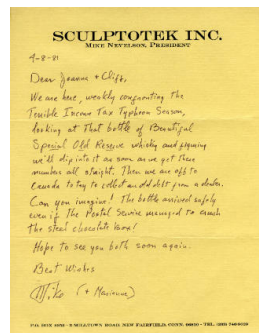 SCULPTOTEK INC.
MIKE NEVELSON, PRESIDENT
4-8-81
Dear Joanna + Cliff,
We are here, weakly confronting the
Terrible Income Tax Typhoon Season,
looking at That bottle of Beautiful
Special Old Reserve whisky and figuring
we'll dip into it as soon as we get these
numbers all straight. Then we are off to
Canada to try to collect an old debt from a dealer.
Can you imagine! The bottle arrived safely
even if the Postal Service managed to crush
the steel chocolate box!
Hope to see you both soon again.
Best Wishes
Mike (+ Marianne)
P.O. BOX MILLTOWN ROAD NEW FAIRFIELD, CONN.